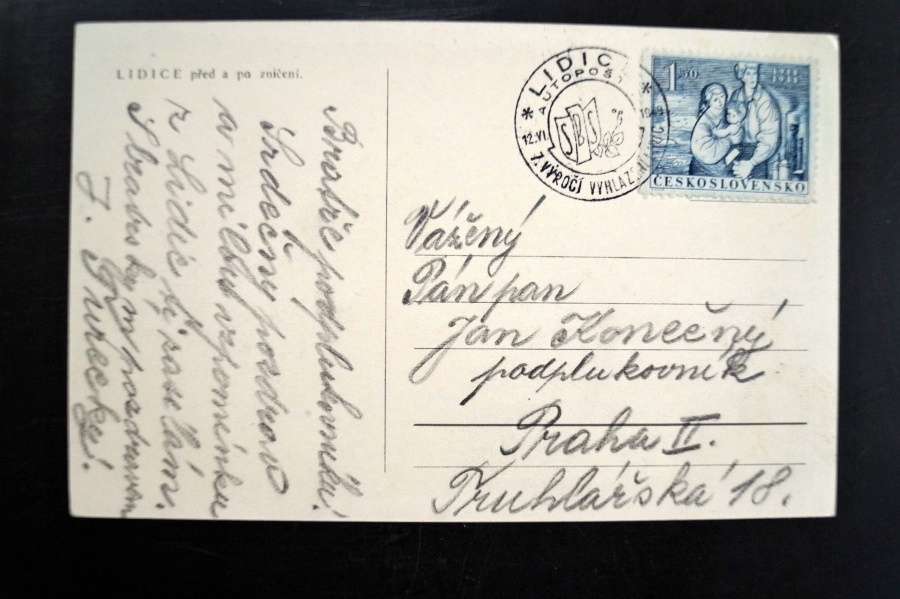 LIDICE před a po zničení.
Bratře podplukovníku!
Srdečný pozdrav
a milou vzpomínku
z Lidic Ti zasílám.
S bratrským pozdravem
J. Turecký.
* LIDICE *
AUTOPOŠTA
SBS
12.VI.
1949
7. VÝROČÍ VYHLAZENÍ LIDIC
1 50
ČESKOSLOVENSKO
Vážený
Pán pan
Ján Konečný
podplukovník
Praha II.
Truhlářská 18.